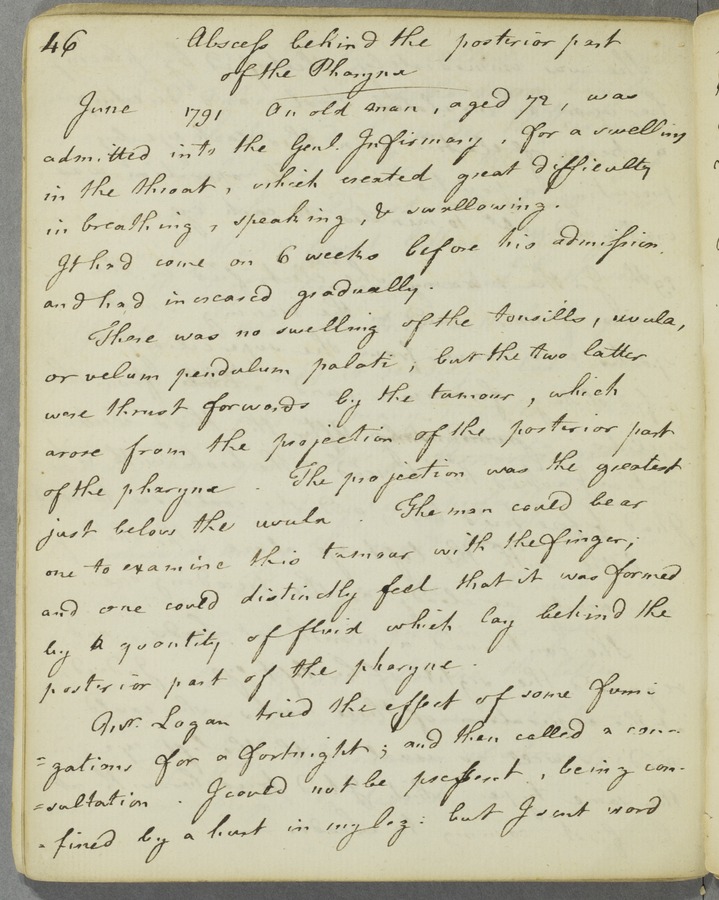 46 Abscess behind the posterior part
of the Pharynx
June 1791 An old man, aged 72, was
admitted into the Genl. Infirmary, for a swelling
in the throat, which created great difficulty
in breathing, speaking, & swallowing.
It had come on 6 weeks before his admission.
and had increased gradually.
There was no swelling of the tonsills, uvula,
or velum pendulum palati; but the two latter
were thrust forwards by the tumour, which
arose from the projection of the posterior part
of the pharynx. The projection was the greatest
just below the uvula. The man could bear
one to examine this tumour with the finger;
and one could distinctly feel that it was formed
by a quantity of fluid which lay behind the
posterior part of the pharynx.
Mr. Logan tried the effect of some fumi
=gations for a fortnight; and then called a con-
=sultation. I could not be present, being con-
=fined by a hurt in my leg: but I sent word